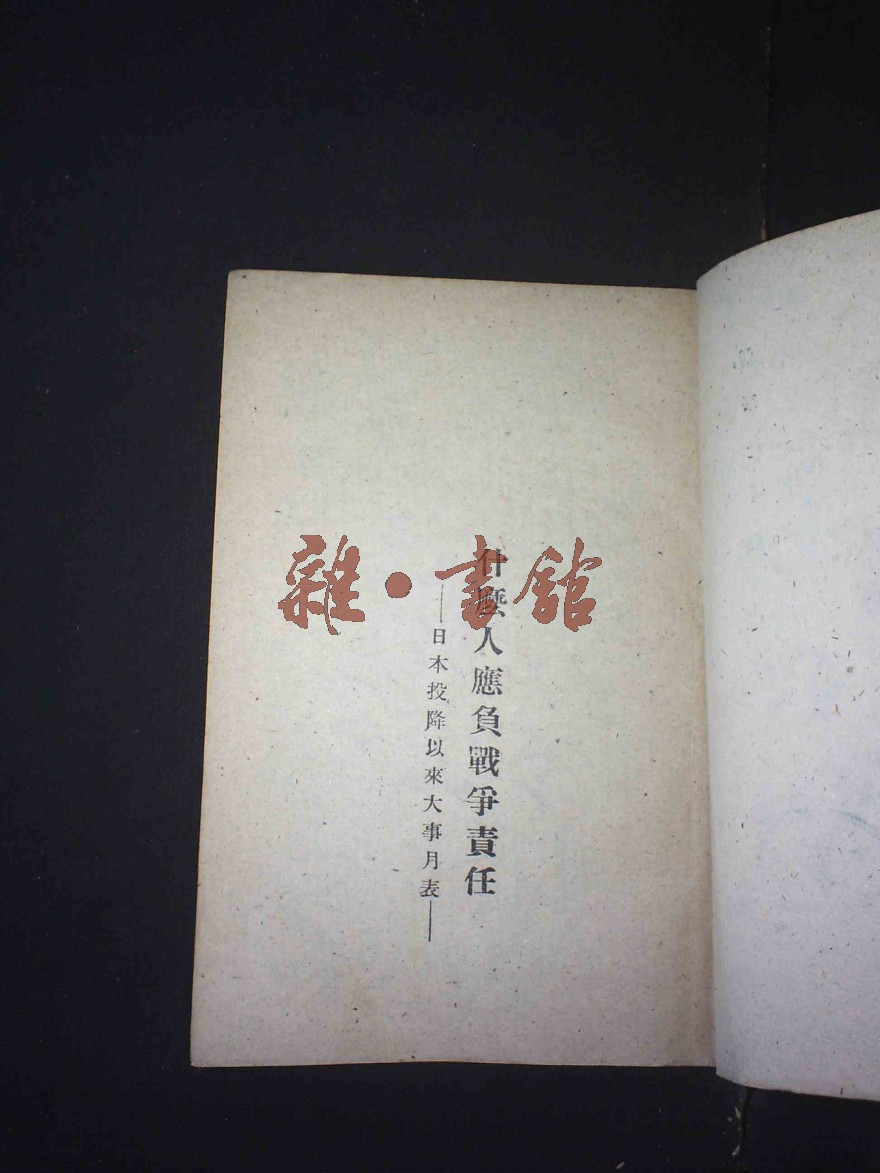 什麼人應負戰爭責任
——日本投降以來大事月表——
雜·書館